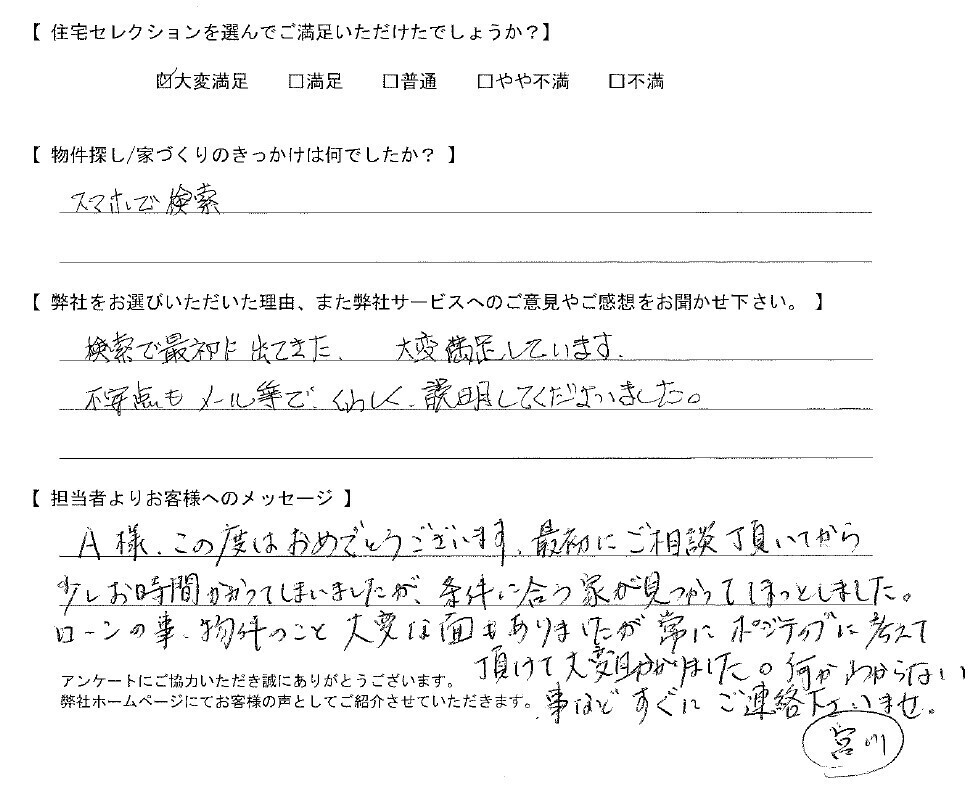 【 住宅セレクションを選んでご満足いただけたでしょうか?】
☑大変満足 □満足 □普通 □やや不満 □不満
【 物件探し/家づくりのきっかけは何でしたか? 】
スマホで検索
【 弊社をお選びいただいた理由、また弊社サービスへのご意見やご感想をお聞かせ下さい。 】
検索で最初に出てきた、 大変満足しています。
不安点もメール等で、くわしく、説明してくださいました。
【 担当者よりお客様へのメッセージ 】
A様、この度はおめでとうございます、最初にご相談頂いてから
少しお時間かかってしまいましたが、条件に合う家が見つかってほっとしました。
ローンの事、物件のこと大変な面もありましたが常にポジティブに考えて
頂けて大変助かりました。何かわからない
事などすぐにご連絡下さいませ。
宮川
アンケートにご協力いただき誠にありがとうございます。
弊社ホームページにてお客様の声としてご紹介させていただきます。